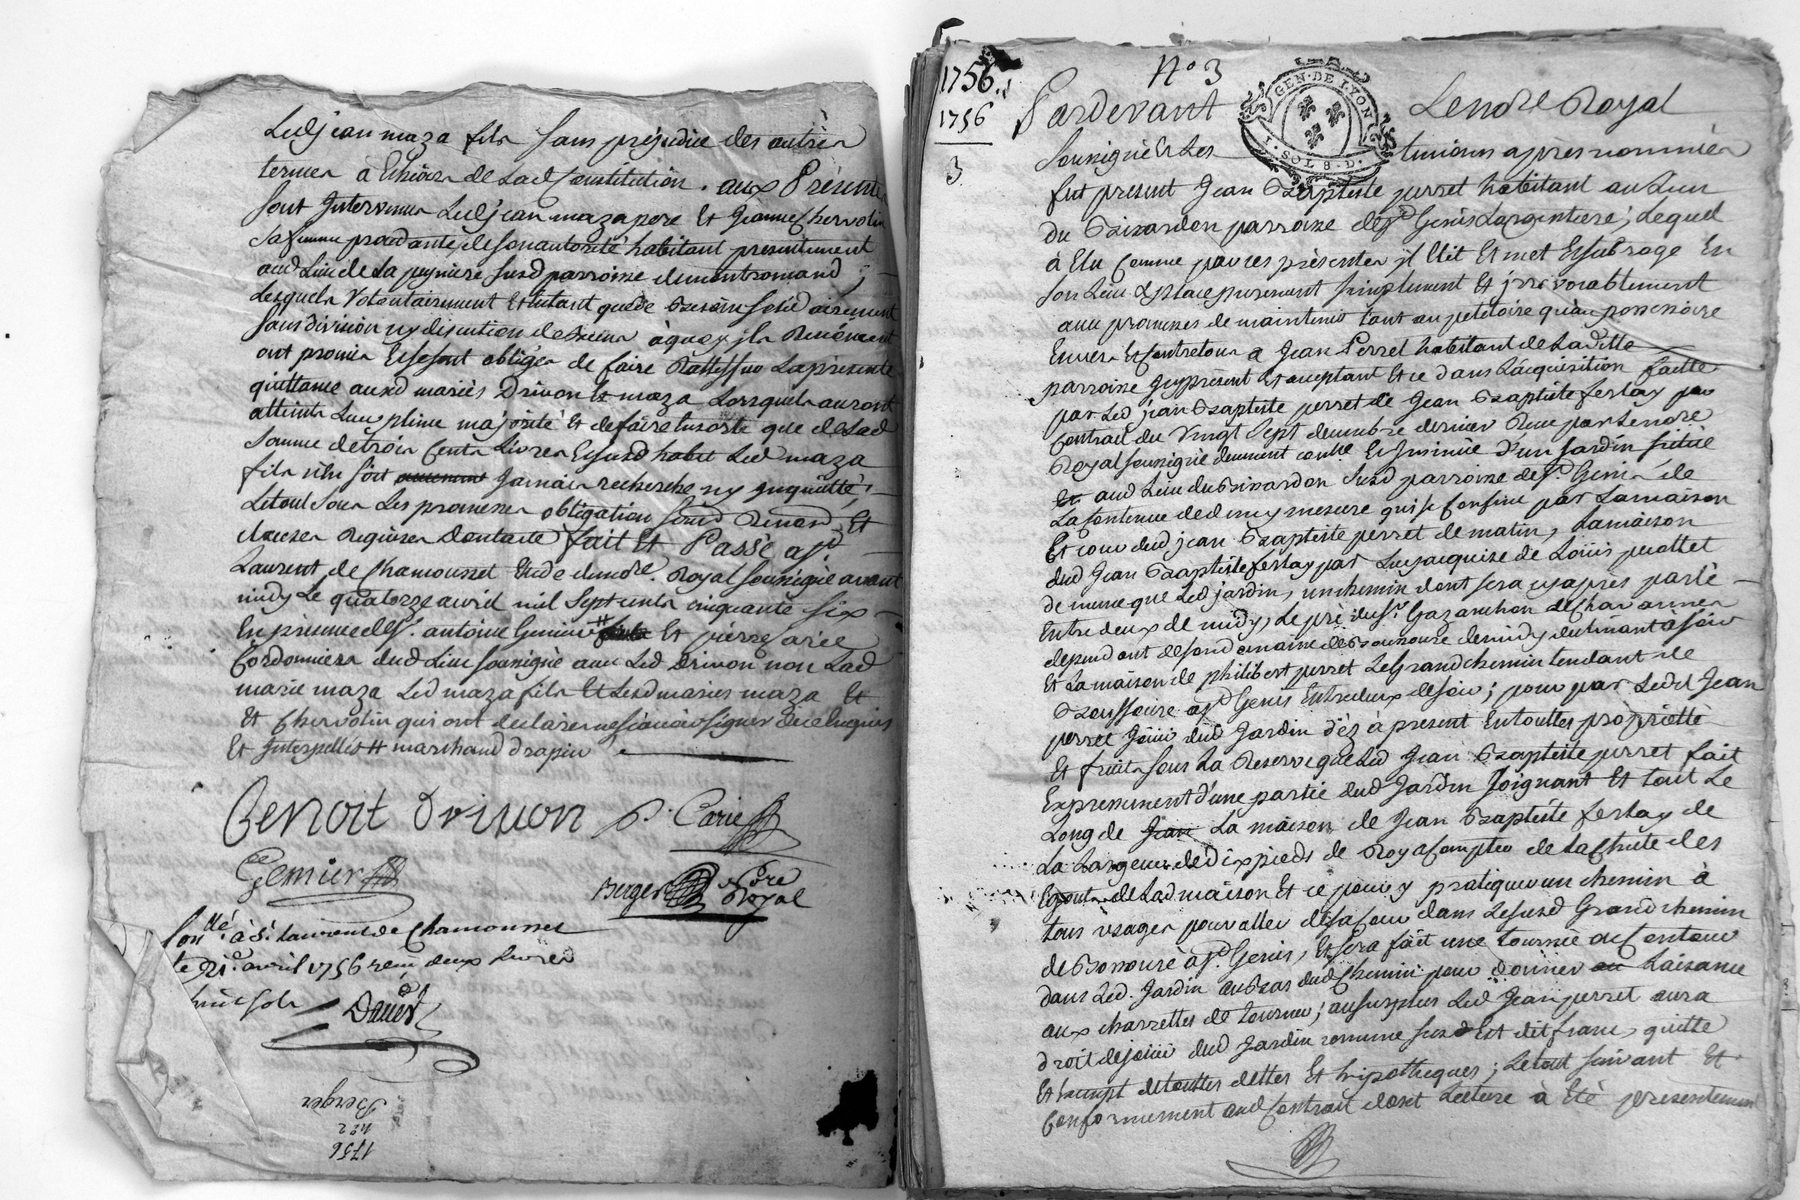 Led jean maza fils sans préjudice des autres
termes à Echeoir de Lad Constitution. aux Présentes
sont Intervenus Led jean maza pere Et Jeanne Chervolin
sa femme procedante de son autorité habitant presentement
aud Lieu de La peyniere susd parroisse de montromand
Lesquels volontairement Et autant que de Besoin solidairement
sans division ny discution de Biens à quoy ils Renoncent
ont promis Et se sont obligés de faire Rattiffier La présente
quittance auxd mariés Drivon Et maza Lorsquils auront
atteint Leur pleine majorité Et de faire Ensorte que de Lad
somme de trois Cents Livres Et susd habit Led maza
fils n'en soit Jamais recherché ny Inquietté
Le tout sous Les promesses obligation Renon Et
clauses Requises Dont acte fait Et Passé a St
Laurent de Chamousset Etude du nore. Royal soussigné avant
midy Le quatorze avril mil sept cents cinquante six
En présence de Sr. antoine Gemier # Et pierre
Cordonnier dud Lieu soussigné avec Led Drivon non Lad
marie maza Led maza fils Et Lesd mariés maza Et
Et Chervolin qui ont declaré ne sçavoir signer de ce Enquis
Et Interpellés # marchand drapier
Benoit Drivon P. Carie
Gemier
Berger Nore Royal
Con.llé à St. Laurent de Chamousset
le 21e. avril 1756 reçu deux livres
huit sols
Berger
n° 2
1756
1756.
1756
3
N° 3
GEN. DE LYON
1. SOL 8. D.
Pardevant Le nore Royal
soussigné Et Les temoins après nommés
fut présent Jean Baptiste perret habitant au Lieu
du Bivardon parroisse de St Genis Largentiere, Lequel
à Elu Comme par ces présentes il Elit Et met Et subroge En
son Lieu Et place purement simplement Et irrevocablement
avec promesses de maintenir tant au petitoire qu'au possessoire
Envers Et Contre tous a Jean Perret habitant de Laditte
parroisse Icy présent Et acceptant Et ce dans L'acquisition faitte
par Led jean Baptiste perret de Jean Baptiste ferlay par
Contrait du vingt sept decembre dernier Reçu par Le nore
Royal soussigné deument contlé Et Insinué D'un Jardin situé
aud Lieu du Bivardon susd parroisse de St. Genis de
La Contenue de demy mesure qui se Confine par La maison
Et cour dud jean Baptiste perret de matin, La maison
dud Jean Baptiste ferlay par Luy acquise de Loüis
de meme que Led jardin, un chemin dont sera cy après parlé
Entre deux de midy, Le pré du Sr Gazanchon de Chavannes
dependant de son domaine de
Et La maison de philibert perret Le Grand chemin tendant de
a St Genis Entre deux de soir; pour par Ledit Jean
perret Joüir dud Jardin dès a présent En touttes proprietté
Et fruits sous La Reserve que Led Jean Baptiste perret fait
Expressement d'une partie dud Jardin Joignant Et tout Le
Long de La maison de Jean Baptiste ferlay de
La Largeur de dix pieds de Roy a Compter de La chute des
de Lad maison Et ce pour y pratiquer un chemin à
tous usages pour aller de sa Cour dans Le susd Grand chemin
de a St. Genis, Et sera fait une tournée
dans Led. Jardin au Bas dud Chemin pour donner Laisance
aux charrettes de tourner; au surplus Led Jean perret aura
droit de joüir dud Jardin comme susd Est dit franc, quitte
Et Exempt de touttes dettes Et hipotheques; Le tout suivant Et
Conformement aud Contrait dont Lecture à Eté presentement